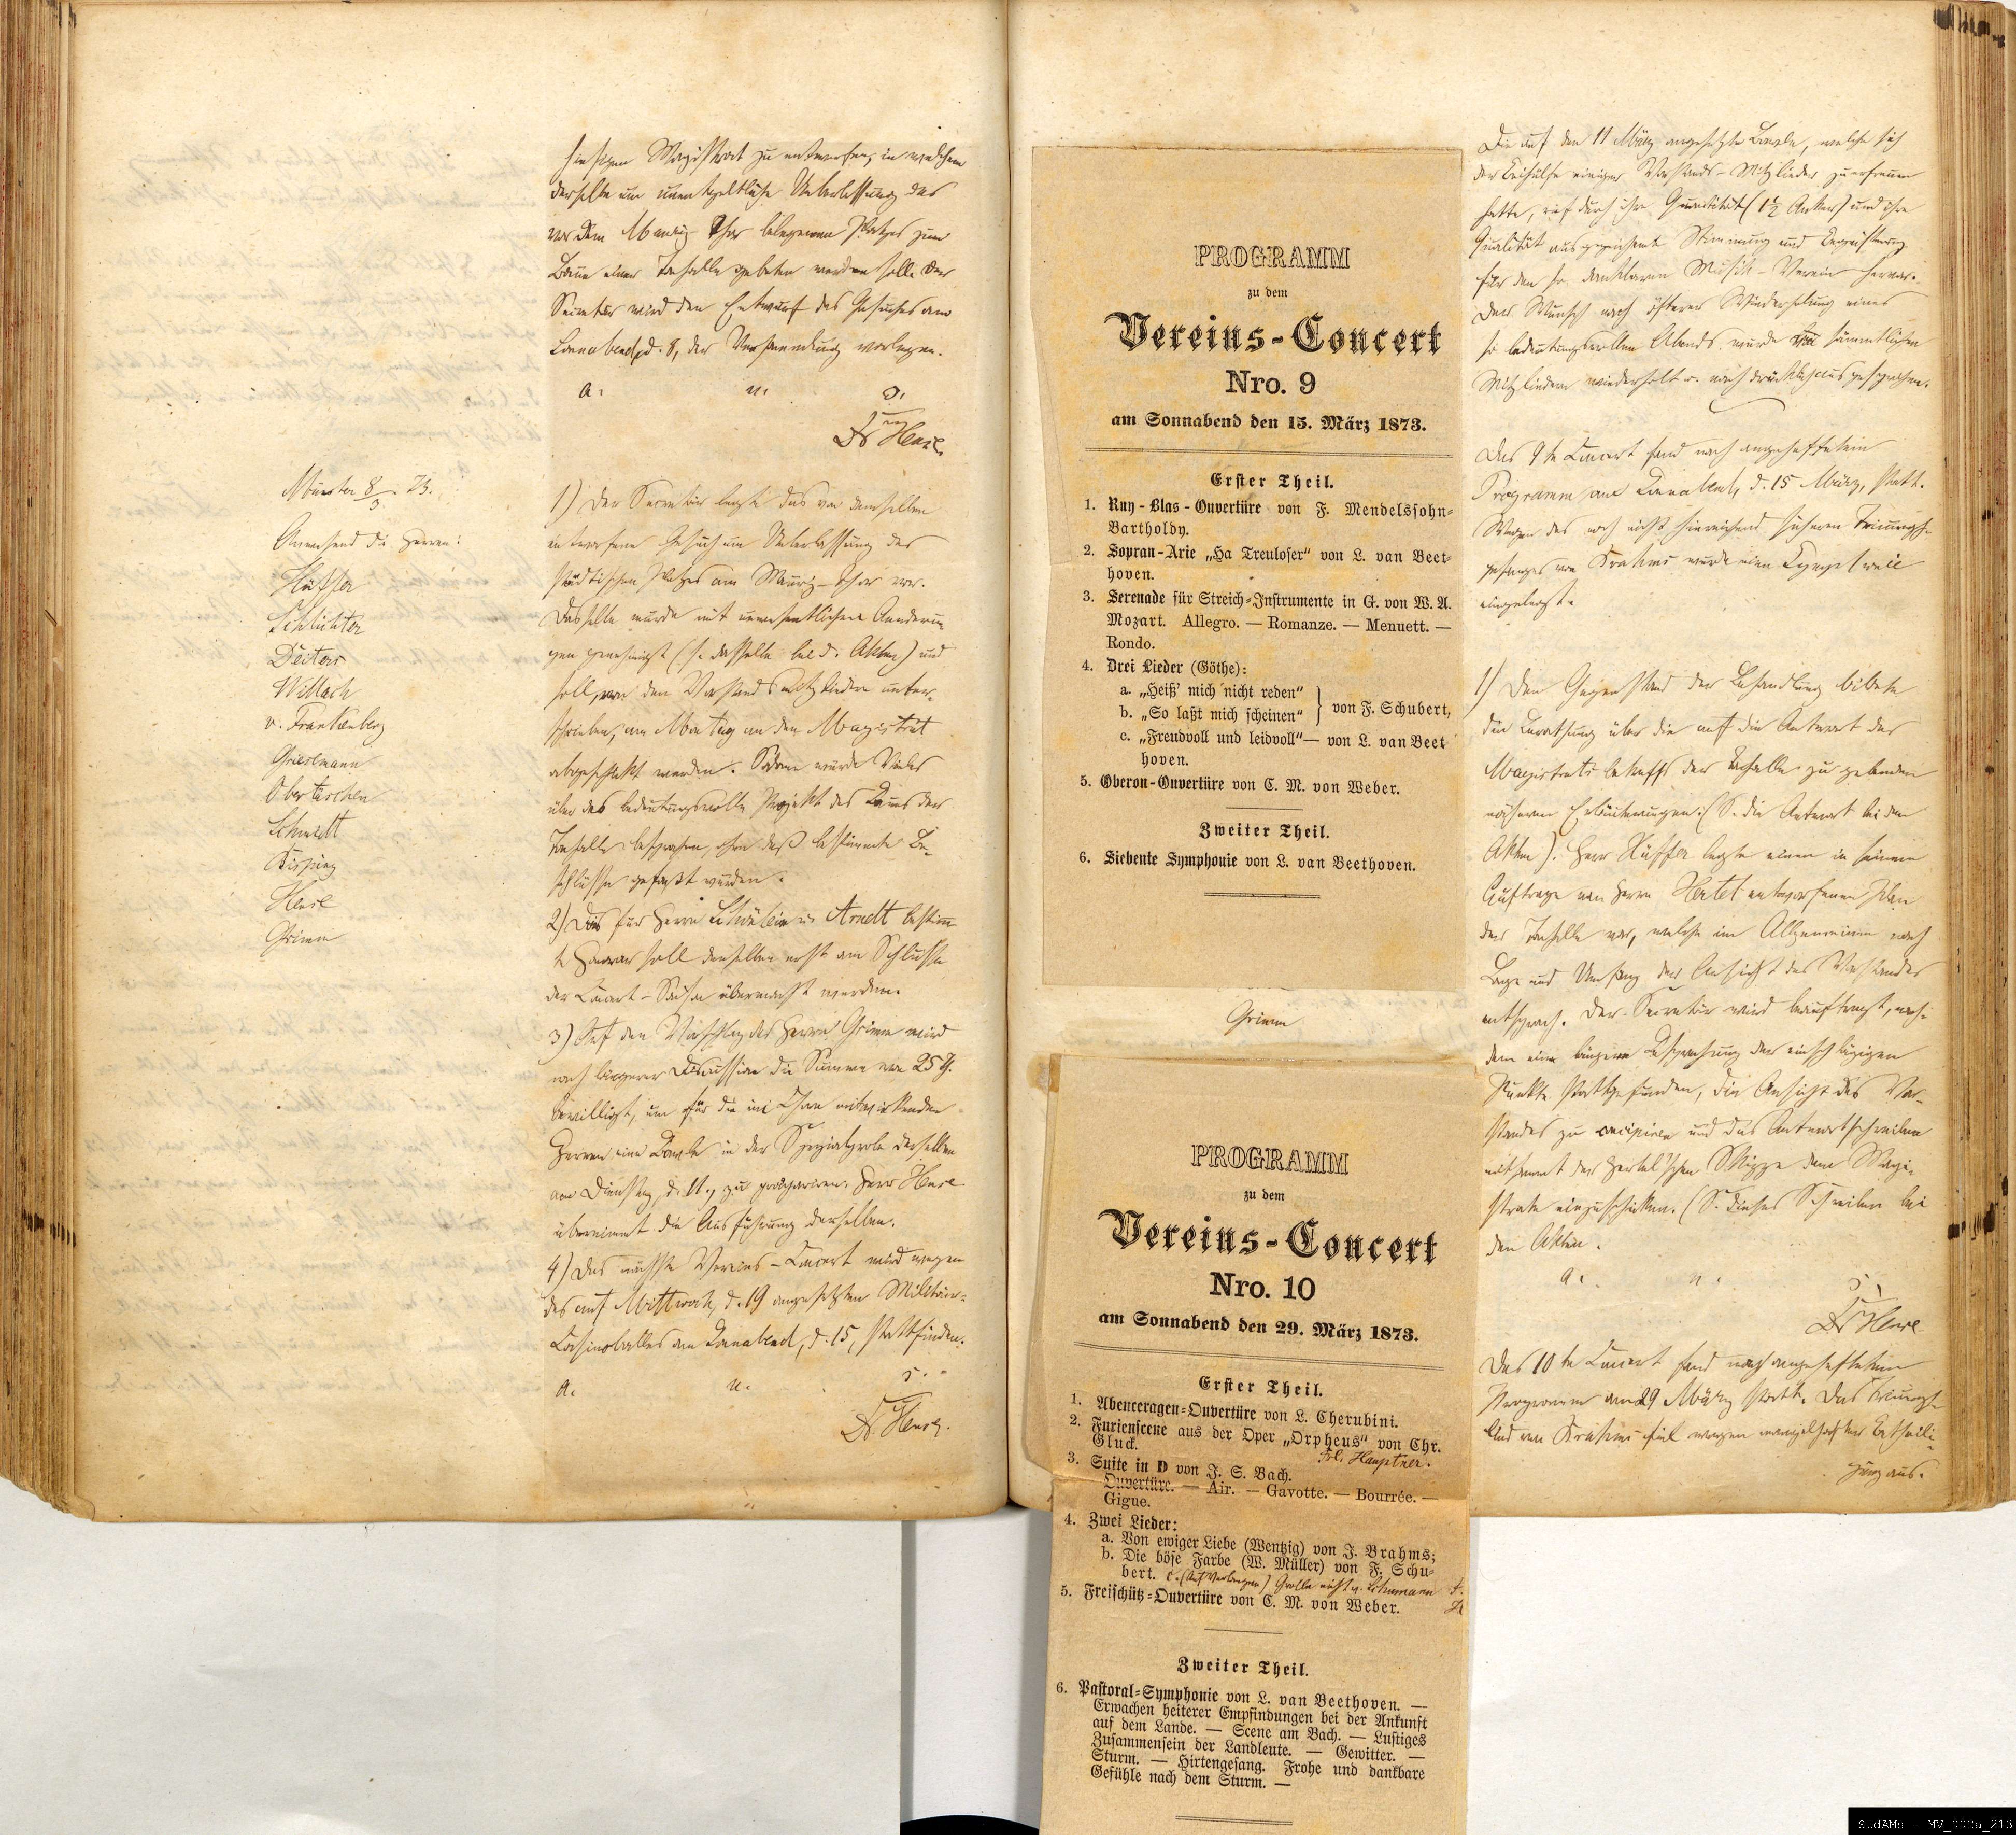 hiesigen Magistrat zu entwerfen, in welchem
derselbe um unentgeltliche Ueberlassung des
vor dem Mauriz-Thor belegenen Platzes zum
Baue einer Tonhalle gebeten werden solle. Der
Secretär wird den Entwurf des Gesuches am
Sonnabend, d. 8, der Versammlung vorlegen.
a. u. s.
Dr Hense
Münster 8/3. 73.
Anwesend die Herren:
Hüffer
Schlichter
Deiters
Wittach
v. Frankenberg
Griesemann
Obertüschen
Schmidt
Bisping
Hense
Grimm
1) Der Secretär legte das von demselben
entworfene Gesuch um Ueberlassung des
städtischen Platzes am Mauriz-Thor vor.
Dasselbe wurde mit unwesentlichen Aenderun
gen genehmigt (s. dasselbe bei d. Akten) und
soll, von den Vorstandsmitgliedern unter-
schrieben, am Montag an den Magistrat
abgeschickt werden. Sodann wurde Vieles
über das bedeutungsvolle Projekt des Baues der
Tonhalle besprochen, ohne daß bestimmte Be-
schlüsse gefaßt wurden.
2) Das für Herrn Schwäbein u Arndt bestimm
te Honorar soll denselben erst am Schlusse
der Concert-Saison übermacht werden.
3) Auf den Vorschlag des Herrn Grimm wird
nach längerer Discussion die Summe von 25
bewilligt, um für die im Chor mitwirkenden
Herren eine Bowle in der Specialprobe derselben
am Dienstag, d. 11., zu präpariren. Herr Hense
übernimmt die Ausführung derselben.
4) Das nächste Vereins-Concert wird wegen
des auf Mittwoch, d. 19 angesetzten Militär-
Casinoballes am Sonnabend, d. 15, stattfinden.
a. u. s.
Dr. Hense.
PROGRAMM
zu dem
Vereins-Concert
Nro. 9
am Sonnabend den 15. März 1873.
Erster Theil.
1. Ruy-Blas-Ouvertüre von F. Mendelssohn-
Bartholdy.
2. Sopran-Arie „Ha Treuloser" von L. van Beet-
hoven.
3. Serenade für Streich-Instrumente in G. von W. A.
Mozart. Allegro. — Romanze. — Menuett. —
Rondo.
4. Drei Lieder (Göthe):
a. „Heiß' mich nicht reden"
b. „So laßt mich scheinen" } von F. Schubert,
c. „Freudvoll und leidvoll"— von L. van Beet
hoven.
5. Oberon-Ouvertüre von C. M. von Weber.
Zweiter Theil.
6. Siebente Symphonie von L. van Beethoven.
Grimm
PROGRAMM
zu dem
Vereins-Concert
Nro. 10
am Sonnabend den 29. März 1873.
Erster Theil.
1. Abenceragen-Ouvertüre von L. Cherubini.
2. Furienscene aus der Oper „Orpheus" von Chr.
Gluck. Frl. Hauptner.
3. Suite in D von J. S. Bach.
Ouvertüre. — Air. — Gavotte. — Bourrée. —
Gigue.
4. Zwei Lieder:
a. Von ewiger Liebe (Wentzig) von J. Brahms;
b. Die böse Farbe (W. Müller) von F. Schu-
bert. c. (Auf Verlangen) Grolle nicht v. Schumann
5. Freischütz-Ouvertüre von C. M. von Weber.
Zweiter Theil.
6. Pastoral-Symphonie von L. van Beethoven. —
Erwachen heiterer Empfindungen bei der Ankunft
auf dem Lande. — Scene am Bach. — Lustiges
Zusammensein der Landleute. — Gewitter. —
Sturm. — Hirtengesang. Frohe und dankbare
Gefühle nach dem Sturm. —
Die auf den 11 März angesetzte Bowle, welche sich
der Beihülfe einiger Vorstands-Mitglieder zu erfreuen
hatte, rief durch ihre Quantität (1½ Anker) und ihre
Qualität ausgezeichnete Stimmung und Begeisterung
für den so dankbaren Musik-Verein hervor.
Der Wunsch nach öfterer Wiederholung eines
so bedeutungsvollen Abends wurde von sämmtlichen
Mitgliedern wiederholt u. nachdrücklichst ausgesprochen.
Das 9te Concert fand nach angeheftetem
Programm am Sonnabend, d. 15 März, statt.
Wegen des noch nicht hinreichend sicheren Triumph-
gesanges von Brahms wurde eine Symphonie
eingelegt.
1) Den Gegenstand der Behandlung bildete
die Berathung über die auf die Antwort des
Magistrats betreffs der Tonhalle zu gebenden
näheren Erläuterungen. (S. die Antwort bei den
Akten). Herr Hüffer legte einen in seinem
Auftrage von Herrn Hertel entworfenen Plan
der Tonhalle vor, welche im Allgemeinen nach
Lage und Umfang der Ansicht des Vorstandes
entsprach. Der Secretär wird beauftragt, nach-
dem eine längere Besprechung der einschlägigen
Punkte stattgefunden, die Ansicht des Vor-
standes zu concipiren und das Antwortschreiben
mitsammt der Hertel'schen Skizze dem Magi-
strate einzuschicken. (S. dieses Schreiben bei
den Akten.
a. u. s.
Dr Hense
Das 10te Concert fand nach angeheftetem
Programm am 29 März statt. Das Triumph-
lied von Brahms fiel wegen mangelhafter Betheili-
gung aus.
StdAMs - MV_002a_213